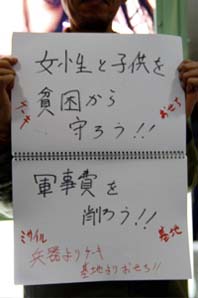 女性と子供を
貧困から
守ろう!!
軍事費を
削ろう!!
ミサイル
基地
兵器よりケーキ
基地よりおせち!!